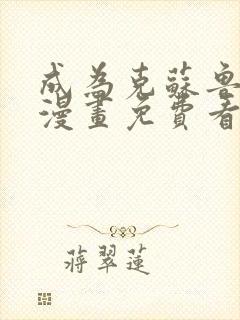 成為克蘇魯
漫畫免費看
蔣翠蓮